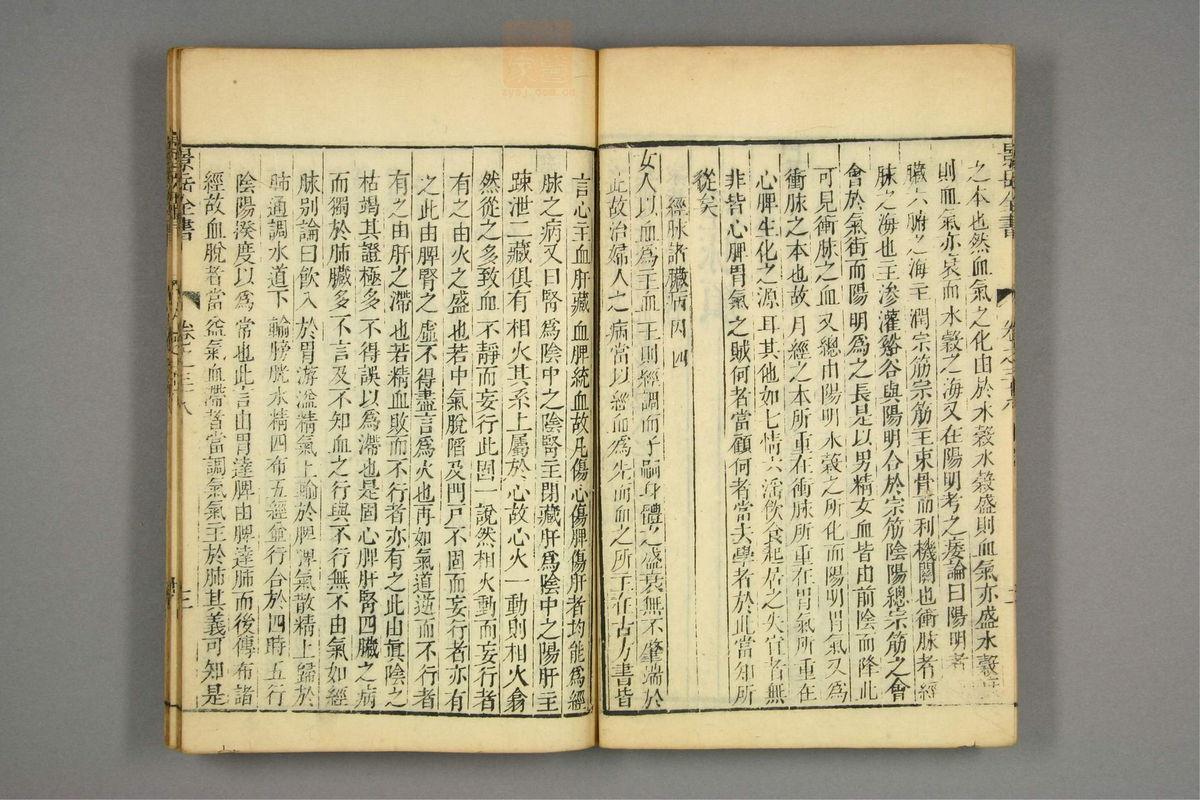 之本也然血氣之化由於水穀水穀盛則血氣亦盛水穀
則血氣亦衰而水穀之海又在陽明考之痿論曰陽明者
臟六腑之海主潤宗筋宗筋主束骨而利機關也衝脉者經
脉之海也主滲灌谿谷與陽明合於宗筋陰陽總宗筋之會
會於氣街而陽明爲之長是以男精女血皆由前陰而降此
可見衝脉之血又總由陽明水穀之所化而陽明胃氣又爲
衝脉之本也故月經之本所重在衝脉所重在胃氣所重在
心脾生化之源耳其他如七情六淫飲食起居之失宜者無
非皆心脾胃氣之賊何者當顧何者當去學者於此當知所
從矣
經脉諸臟病因 四
女人以血爲主血王則經調而子嗣身體之盛衰無不肇端於
此故治婦人之病當以經血爲先而血之所主在古方書皆
言心主血肝藏血脾統血故凡傷心傷脾傷肝者均能爲經
脉之病又曰腎爲陰中之陰腎主閉藏肝爲陰中之陽肝主
踈泄二藏俱有相火其系上屬於心故心火一動則相火翕
然從之多致血不靜而妄行此固一說然相火動而妄行者
有之由火之盛也若中氣脫陷及門戶不固而妄行者亦有
之此由脾腎之虛不得盡言爲火也再如氣道逆而不行者
有之由肝之滯也若精血敗而不行者亦有之此由眞陰之
枯竭其證極多不得誤以爲滯也是固心脾肝腎四臟之病
而獨於肺臟多不言及不知血之行與不行無不由氣如經
脉别論曰飲入於胃游溢精氣上輸於脾脾氣散精上歸於
肺通調水道下輸膀胱水精四布五經並行合於四時五行
陰陽揆度以爲常也此言由胃達脾由脾達肺而後傳布諸
經故血脫者當益氣血滯者當調氣氣主於肺其義可知是
景岳全書
卷之三十八
景岳全書